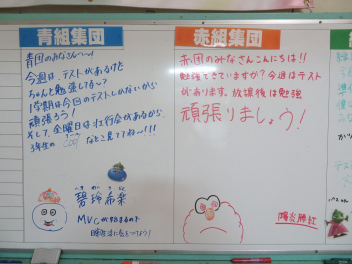 青組集団
青団のみなさ〜〜ん!
今週は、テストがあるけど
ちゃんと勉強してる〜?
1学期は今回のテストしかないから
頑張ろう!
そして、金曜日は壮行会があるから
3年生の
なとこ見ててね〜!!!
碧玲希楽
MVCが始まるので
赤組集団
赤団のみなさんこんにちは!!
勉強できていますか?今週はテスト
があります。放課後は勉強
頑張りましょう!
陽炎勝紅